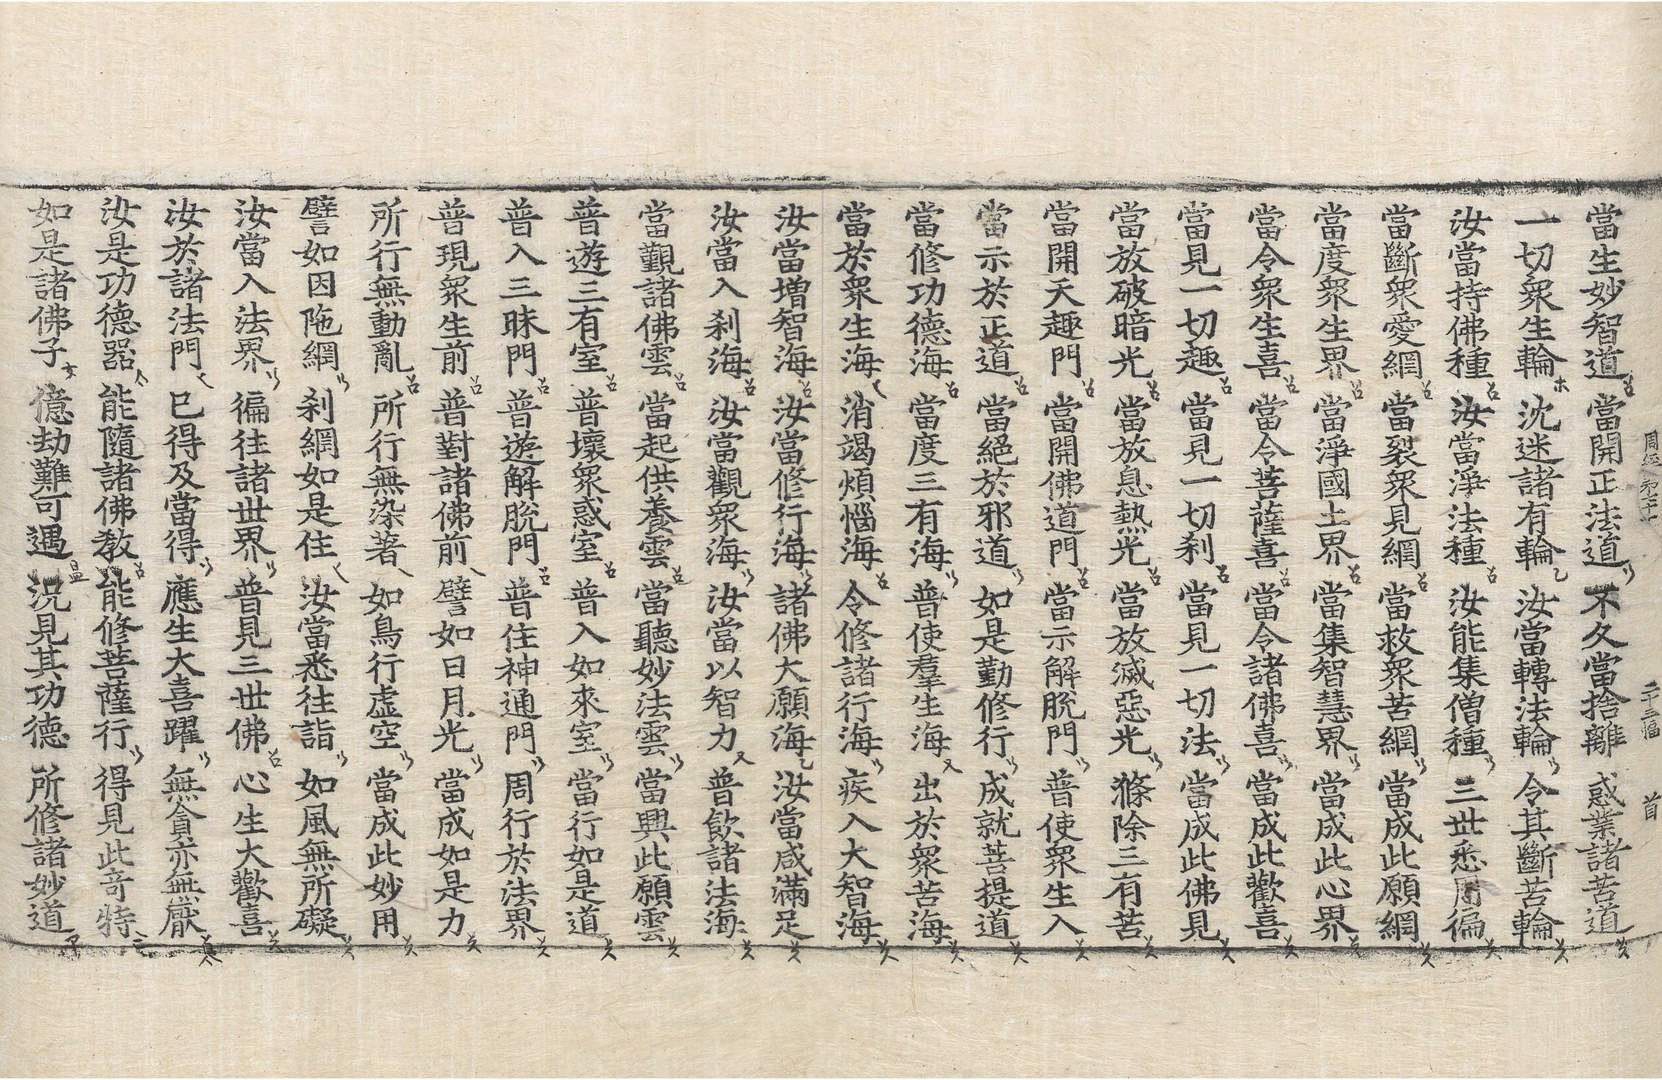 當生妙智道 當開正法道 不久當捨離 惑業諸苦道
一切衆生輪 沈迷諸有輪 汝當轉法輪 令其斷苦輪
汝當持佛種 汝當淨法種 汝能集僧種 三世悉周徧
當斷衆愛網 當裂衆見網 當救衆苦網 當成此願網
當度衆生界 當淨國土界 當集智慧界 當成此心界
當令衆生喜 當令菩薩喜 當令諸佛喜 當成此歡喜
當見一切趣 當見一切刹 當見一切法 當成此佛見
當放破暗光 當放息熱光 當放滅惡光 滌除三有苦
當開天趣門 當開佛道門 當示解脫門 普使衆生入
當示於正道 當絕於邪道 如是勤修行 成就菩提道
當修功德海 當度三有海 普使羣生海 出於衆苦海
當於衆生海 消竭煩惱海 令修諸行海 疾入大智海
汝當增智海 汝當修行海 諸佛大願海 汝當咸滿足
汝當入刹海 汝當觀衆海 汝當以智力 普飲諸法海
當覲諸佛雲 當起供養雲 當聽妙法雲 當興此願雲
普遊三有室 普壞衆惑室 普入如來室 當行如是道
普入三昧門 普遊解脫門 普住神通門 周行於法界
普現衆生前 普對諸佛前 譬如日月光 當成如是力
所行無動亂 所行無染著 如鳥行虛空 當成此妙用
譬如因陁網 刹網如是住 汝當悉往詣 如風無所礙
汝當入法界 徧往諸世界 普見三世佛 心生大歡喜
汝於諸法門 已得及當得 應生大喜躍 無貪亦無厭
汝是功德器 能隨諸佛教 能修菩薩行 得見此奇特
如是諸佛子 億劫難可遇 況見其功德 所修諸妙道